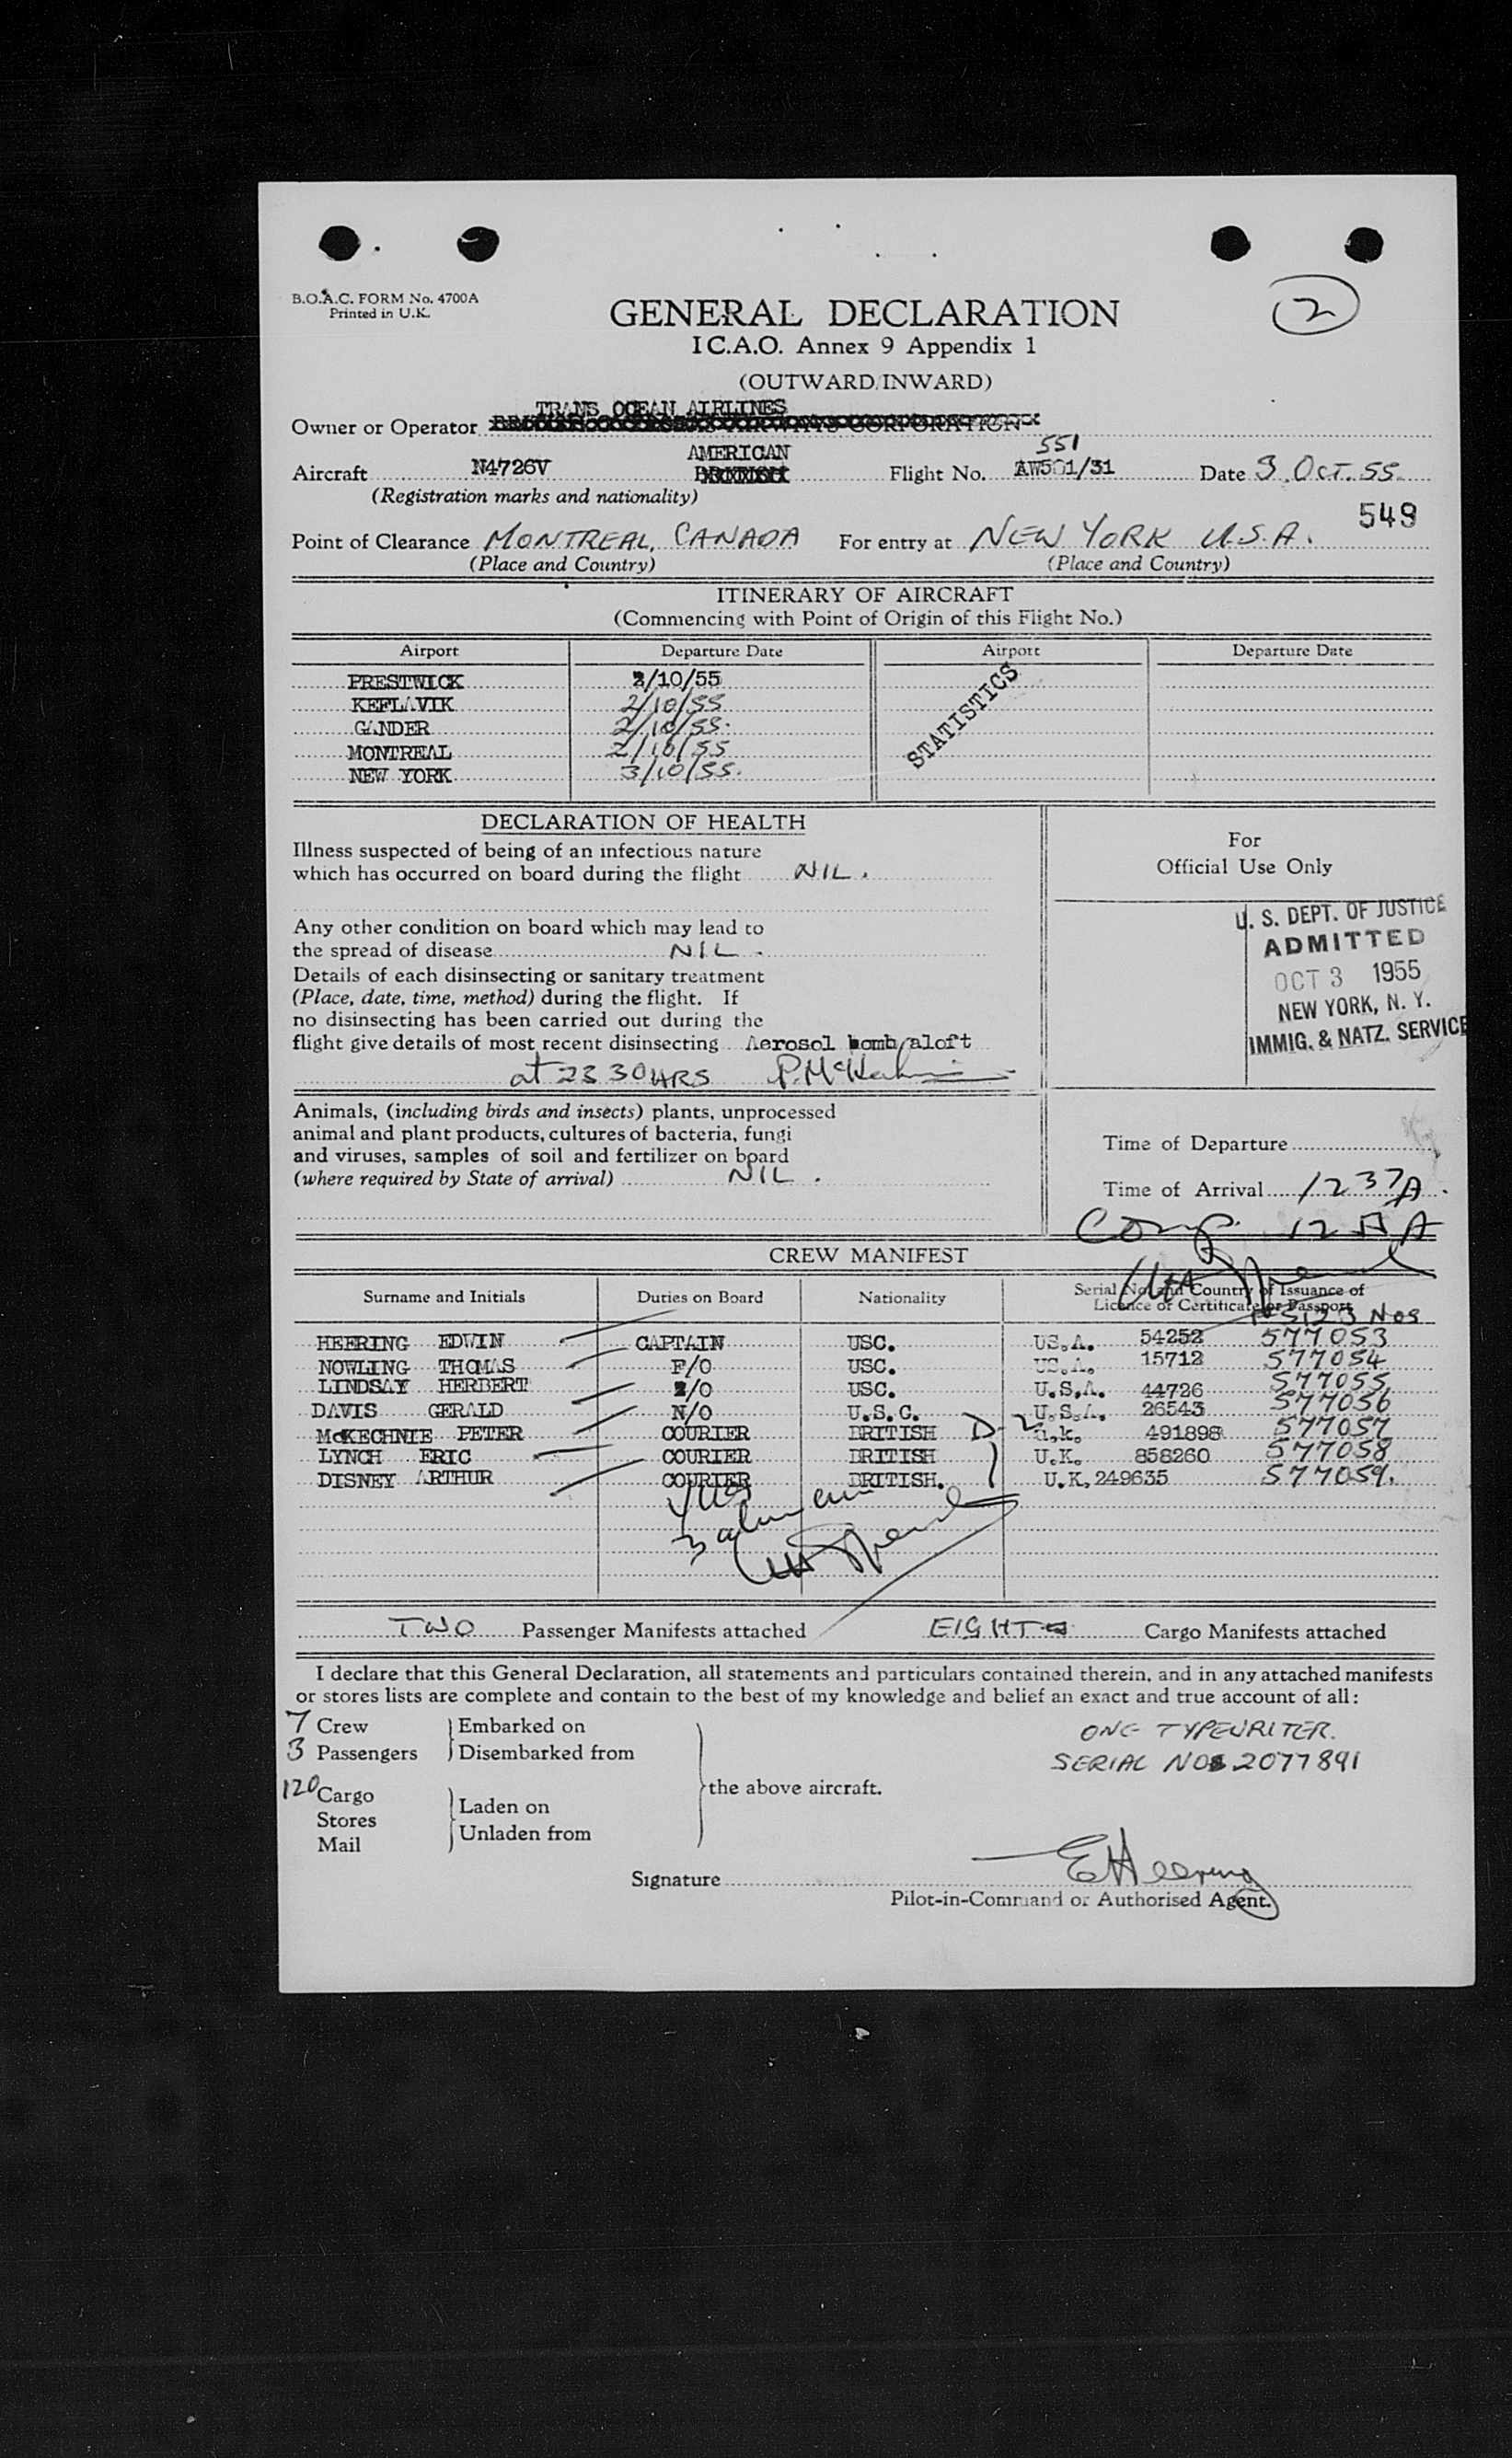 B.O.A.C. FORM No. 4700A
Printed in U.K.
2
GENERAL DECLARATION
I C.A.O. Annex 9 Appendix 1
(OUTWARD/INWARD)
TRANS OCEAN AIRLINES
Owner or Operator
AMERICAN
551
Aircraft N4726V Flight No. AW501/31 Date 3. OCT. 55.
(Registration marks and nationality)
549
Point of Clearance MONTREAL, CANADA For entry at NEW YORK U.S.A.
(Place and Country) (Place and Country)
ITINERARY OF AIRCRAFT
(Commencing with Point of Origin of this Flight No.)
Airport Departure Date Airport Departure Date
PRESTWICK 2/10/55
KEFLAVIK 2/10/55
GANDER 2/10/55.
MONTREAL 2/10/55
NEW YORK 3/10/55.
STATISTICS
DECLARATION OF HEALTH
Illness suspected of being of an infectious nature
which has occurred on board during the flight NIL.
Any other condition on board which may lead to
the spread of disease NIL.
Details of each disinsecting or sanitary treatment
(Place, date, time, method) during the flight. If
no disinsecting has been carried out during the
flight give details of most recent disinsecting Aerosol bomb/aloft
at 2330 HRS
For
Official Use Only
U. S. DEPT. OF JUSTICE
ADMITTED
OCT 3 1955
NEW YORK, N. Y.
IMMIG. & NATZ. SERVICE
Animals, (including birds and insects) plants, unprocessed
animal and plant products, cultures of bacteria, fungi
and viruses, samples of soil and fertilizer on board
(where required by State of arrival) NIL.
Time of Departure
Time of Arrival 1237A.
Comp.
CREW MANIFEST
Surname and Initials Duties on Board Nationality Serial No. and Country of Issuance of
Licence or Certificate or Passport
HEERING EDWIN CAPTAIN USC. US.A. 54252 577053
NOWLING THOMAS F/O USC. US.A. 15712 577054
LINDSAY HERBERT 2/O USC. U.S.A. 44726 577055
DAVIS GERALD N/O U.S.C. U.S.A. 26543 577056
McKECHNIE PETER COURIER BRITISH D-2 u.k. 491898 577057
LYNCH ERIC COURIER BRITISH U.K. 858260 577058
DISNEY ARTHUR COURIER BRITISH. U.K. 249635 577059.
TWO Passenger Manifests attached EIGHT Cargo Manifests attached
I declare that this General Declaration, all statements and particulars contained therein, and in any attached manifests
or stores lists are complete and contain to the best of my knowledge and belief an exact and true account of all:
7 Crew Embarked on
3 Passengers Disembarked from
120 Cargo
Stores
Mail
Laden on
Unladen from
the above aircraft.
ONE TYPEWRITER.
SERIAL NO 2077891
Signature E Heering
Pilot-in-Command or Authorised Agent.